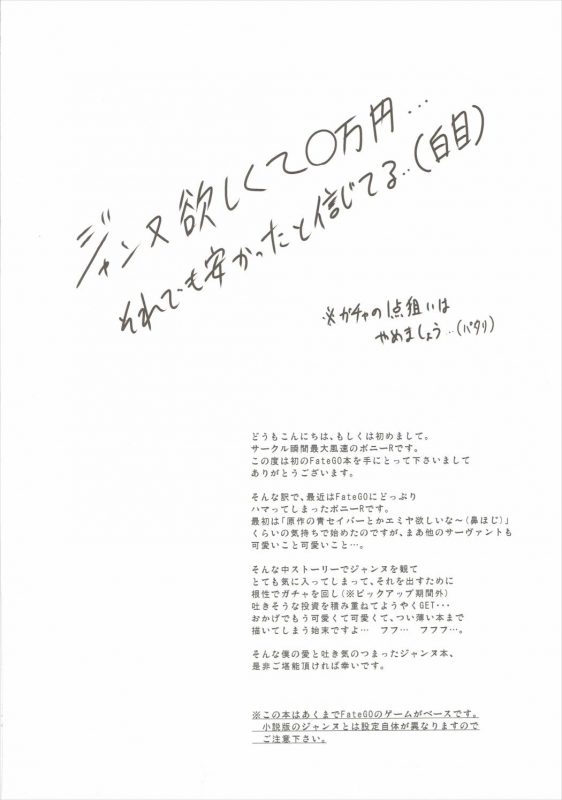 ジャンヌ欲しくて〇万円…
それでも安かったと信じてる…(白目)
※ガチャの1点狙いは
やめましょう…(パタリ)
どうもこんにちは、もしくは初めまして。
サークル瞬間最大風速のポニーRです。
この度は初のFateGO本を手にとって下さいまして
ありがとうございます。
そんな訳で、最近はFateGOにどっぷり
ハマってしまったポニーRです。
最初は「原作の青セイバーとかエミヤ欲しいな〜(鼻ほじ)」
くらいの気持ちで始めたのですが、まあ他のサーヴァントも
可愛いこと可愛いこと…。
そんな中ストーリーでジャンヌを観て
とても気に入ってしまって、それを出すために
根性でガチャを回し(※ピックアップ期間外)
吐きそうな投資を積み重ねてようやくGET・・・
おかげでもう可愛くて可愛くて、つい薄い本まで
描いてしまう始末ですよ… フフ… フフフ…。
そんな僕の愛と吐き気のつまったジャンヌ本、
是非ご堪能頂ければ幸いです。
※この本はあくまでFateGOのゲームがベースです。
小説版のジャンヌとは設定自体が異なりますので
ご注意下さい。